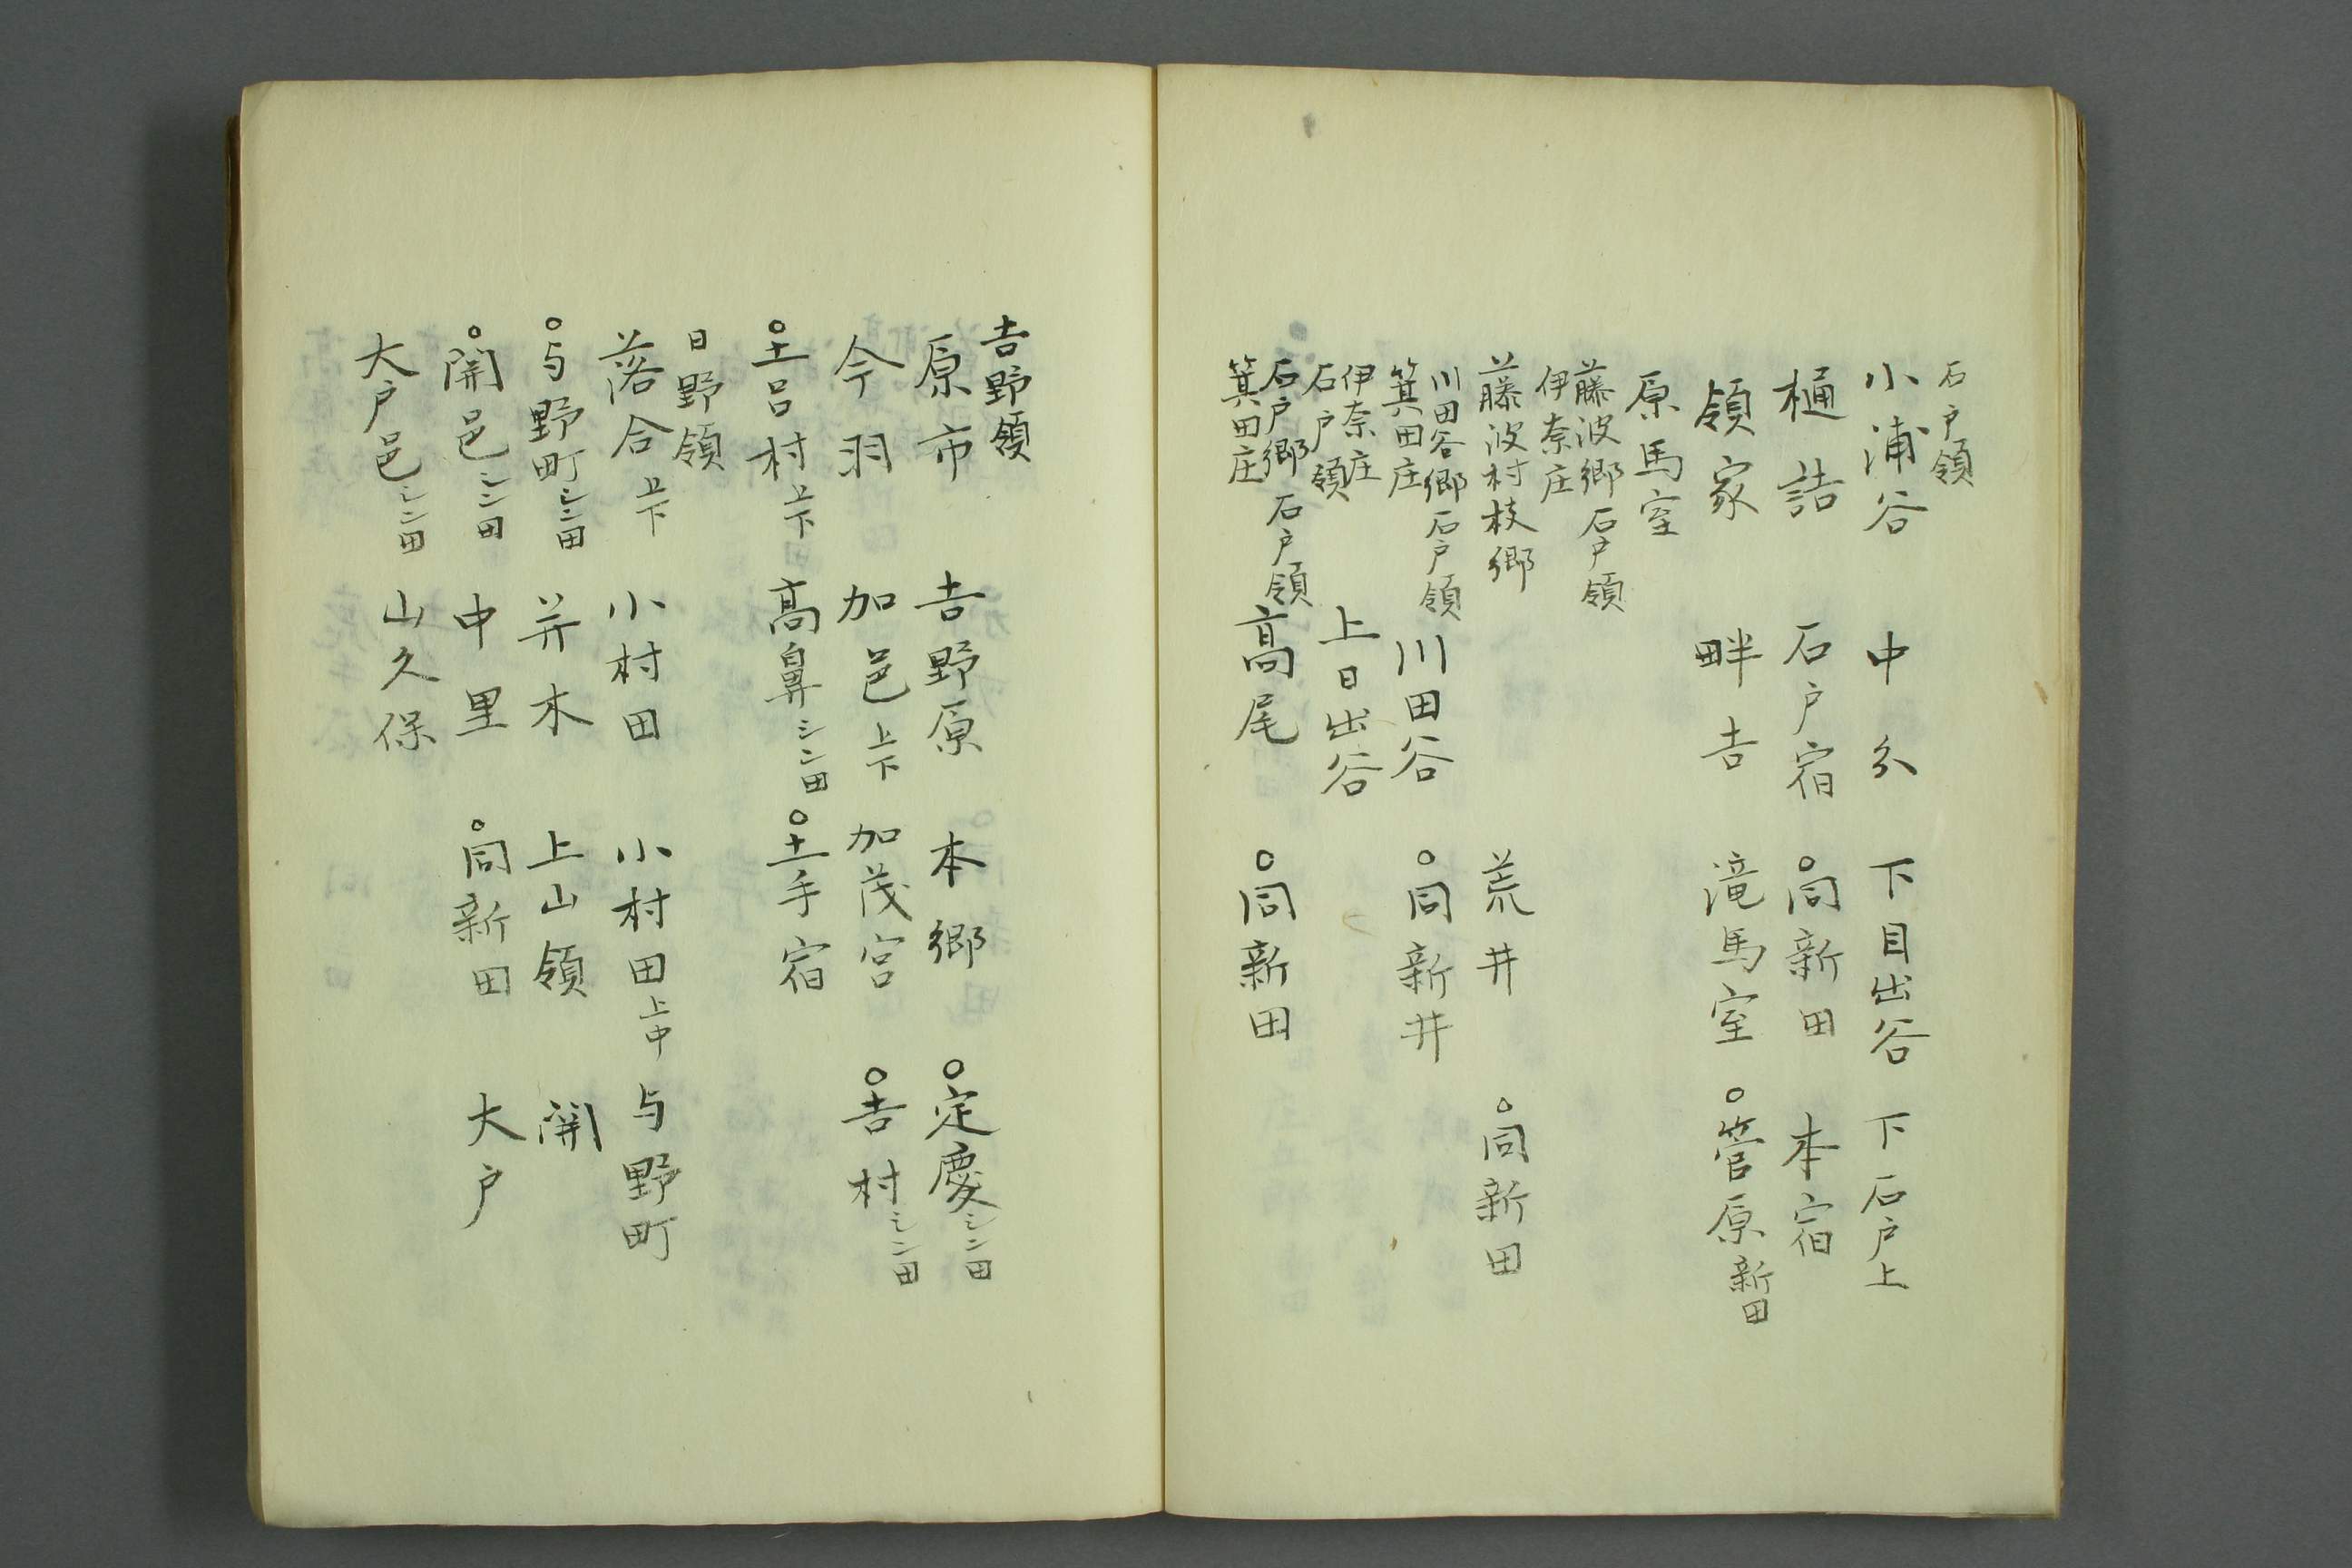 石戸領
小浦谷　中分　下目出谷　下石戸上
樋詰　石戸宿　○同新田　本宿
領家　畔吉　滝馬室　○菅原新田
原馬室
藤波郷石戸領
伊奈庄
藤波村枝郷　荒井　○同新田
川田谷郷石戸領
箕田庄　川田谷　○同新井
伊奈庄
石戸領　上日出谷
石戸郷石戸領
箕田庄　高尾　○同新田
吉野領
原市　吉野原　本郷　○定慶シン田
今羽　加邑上下　加茂宮　○吉村シン田
○土呂村上下　高鼻シン田　○土手宿
日野領
落合上下　小村田　小村田上中　与野町
○与野町シン田　并木　上山領　開
○開邑シン田　中里　○同新田　大戸
大戸邑シン田　山久保